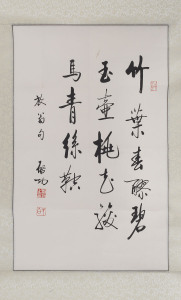 竹葉春醪碧
玉壺桃花駿
馬青絲鞚
放翁句 啟功